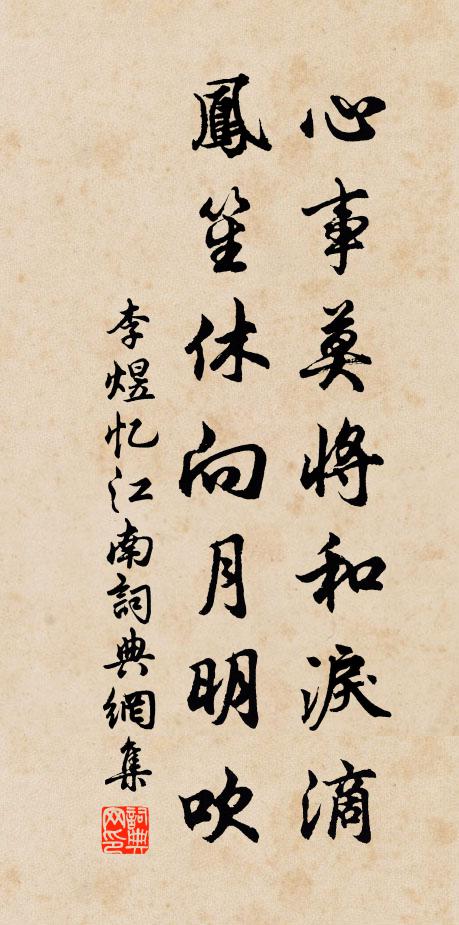 心事莫將和淚滴
鳳笙休向月明吹
李煜忆江南詞典網集
詞典网印